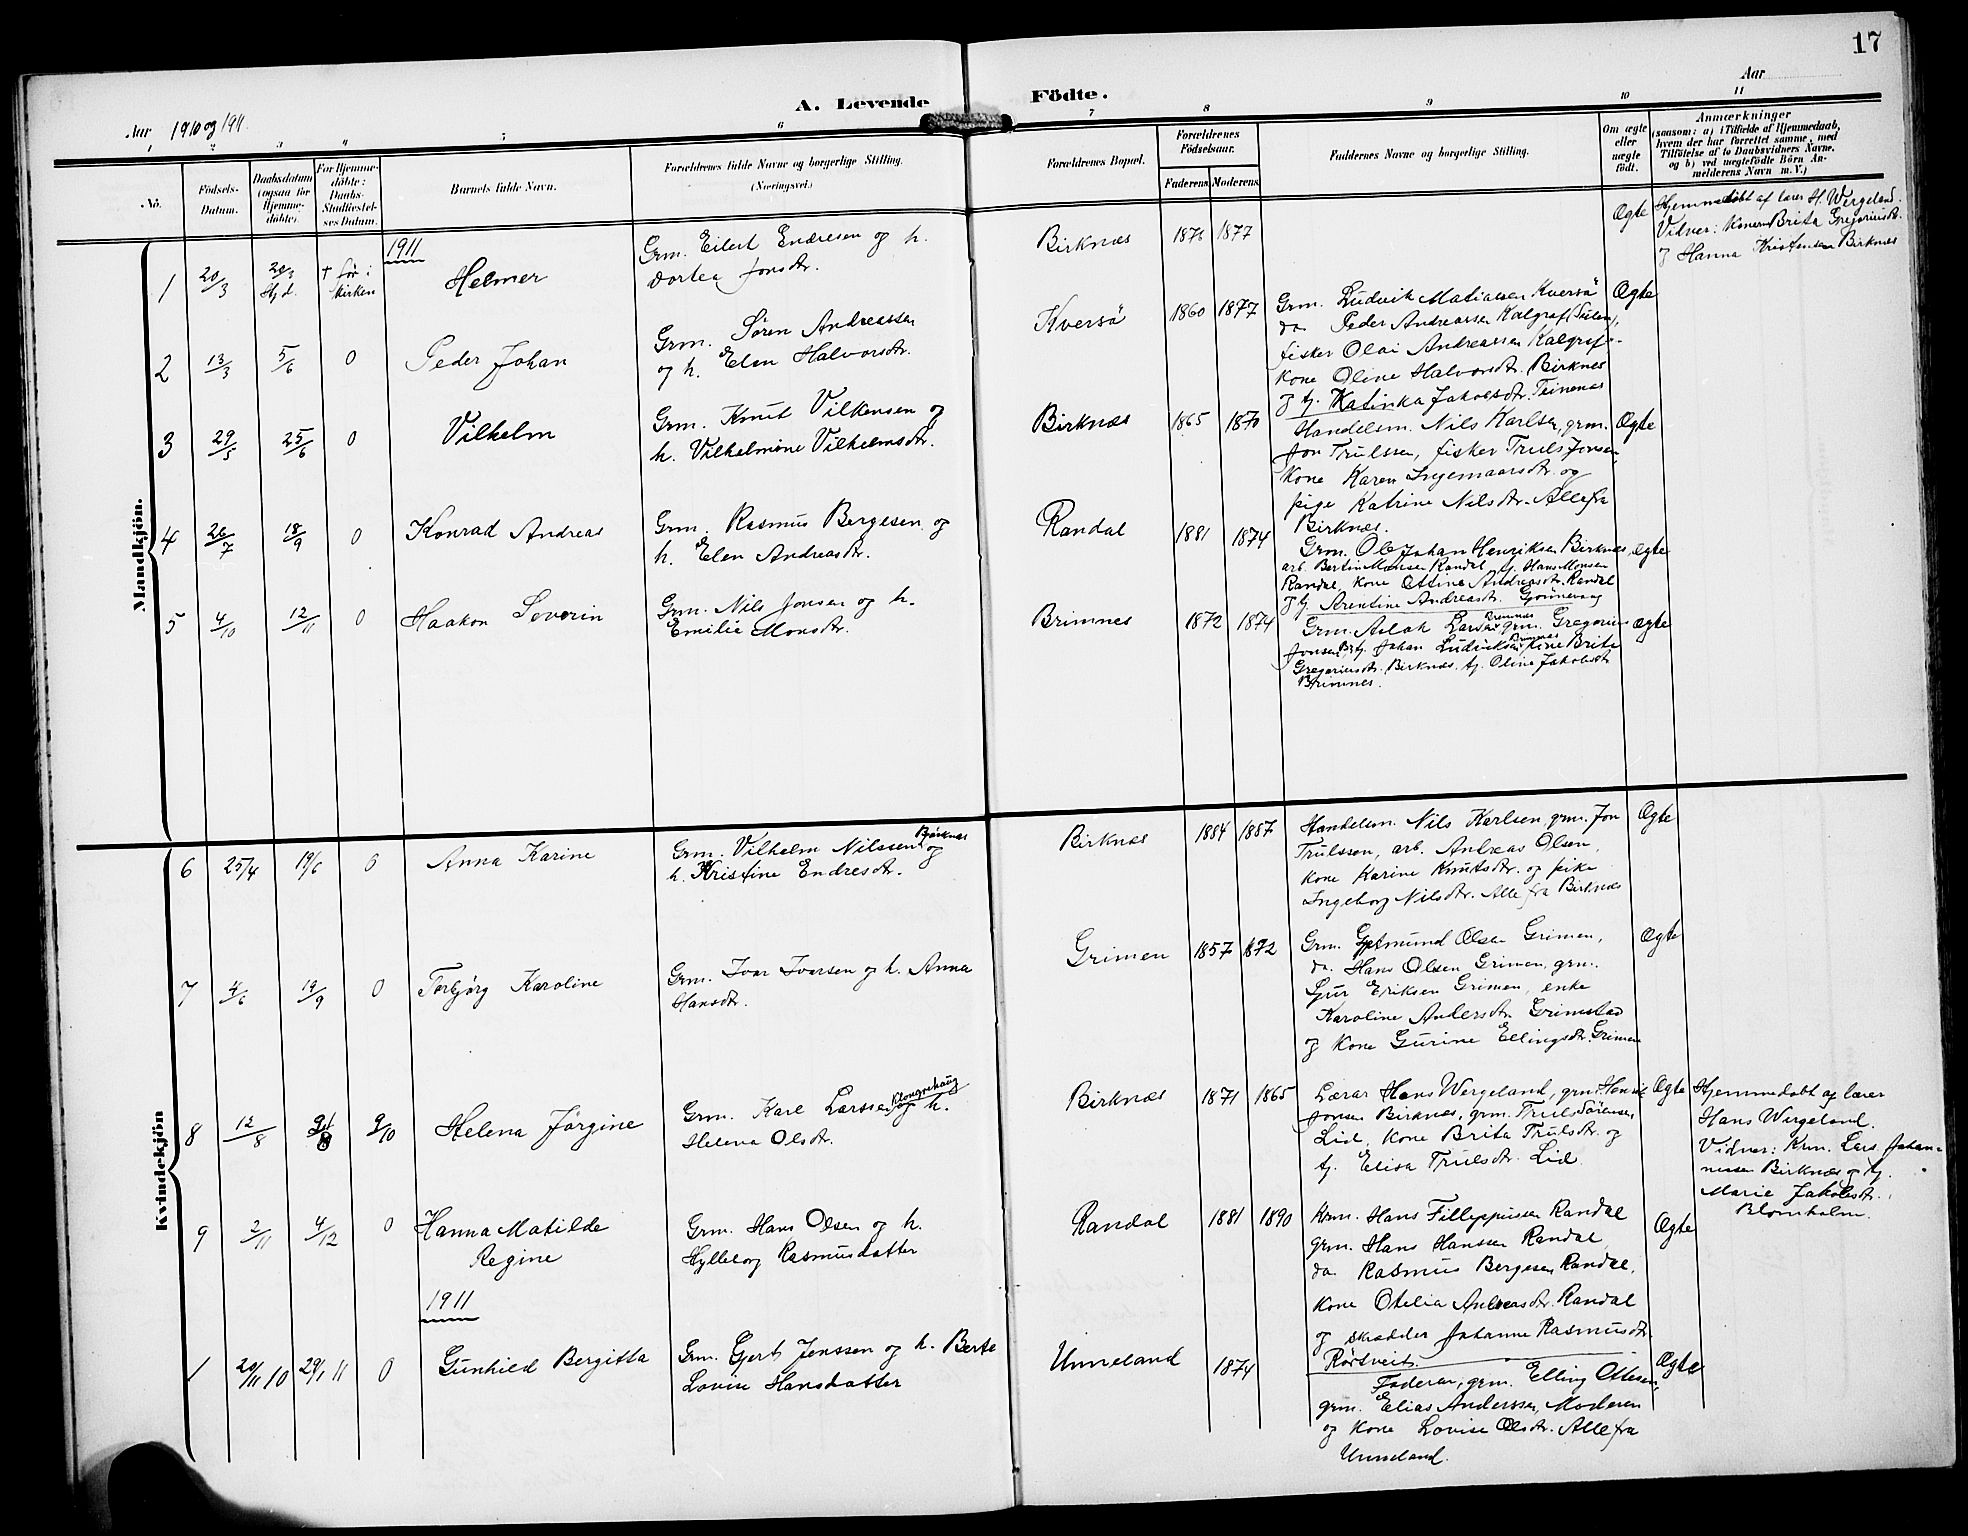 17
Aar 1910 og 1911.
A. Levende Födte.
Aar
1 2 3 4 5 6 7 8 9 10 11
No.
Födsels-Datum.
Daabsdatum (ogsaa for Hjemmedöbte)
For Hjemmedöbte: Daabs-Stadfæstelses Datum.
Barnets fulde Navn.
Forældrenes fulde Navne og borgerlige Stilling. (Næringsvei.)
Forældrenes Bopæl.
Forældrenes Födselsaar.
Faderens Moderens
Faddernes Navne og borgerlige Stilling.
Om ægte eller uægte födt.
Anmærkninger
(saasom: a) i Tilfælde af Hjemmedaab,
hvem der har forrettet samme, med
Tilföielse af to Daabsvidners Navne,
og b) ved uægtefödte Börn Anmelderens Navn m.V.)
Mandkjön.
1911
1 20/3 20/3 Hjd. † før i kirken
Helmer
Grm. Eilert Endresen og h.
Dortea Jonsdtr.
Birknæs 1876 1877
Ægte
Hjemmedøbt af lærer H. Wergeland.
Vidner: Konen Brita Gregoriusdtr.
og Hanna Kristensen Birknæs
2 13/3 5/6 0
Peder Johan
Grm. Søren Andreassen
og h. Elen Halvorsdtr.
Kversø 1860 1877
Grm. Ludvik Matiassen Kversø
do Peder Andreassen Kalgraf
fisker Olai Andreassen Kalgraf.
Kone Oline Halvorsdtr. Birknes
og tj. Katinka Jakobsdtr. Teinenes
Ægte
3 29/5 25/6 0
Vilhelm
Grm. Knut Vilkensen og
h. Vilhelmine Vilhelmsdtr.
Birknæs 1865 1870
Handelsm. Nils Karlsen, grm.
Jon Trulssen, fisker Truls Jonsen,
Kone Karen Ingemaarsdtr. og
pige Katrine Nilsdtr. Alle fra
Birknæs.
Ægte
4 26/7 18/9 0
Konrad Andreas
Grm. Rasmus Bergesen og
h. Elen Andreasdtr.
Randal 1881 1874
Grm. Ole Johan Henriksen Birknes,
arb. Bertin Monsen Randal, tj. Hans Monsen
Randal, Kone Ottine Andreasdtr. Randal
og tj. Arentine Andreasdtr.
Ægte
5 4/10 12/11 0
Haakon Severin
Grm. Nils Jonsen og h.
Emilie Monsdtr.
Brimnes 1872 1874
Grm. Aslak Larsen Brimnes, grm. Gregorius
Jonsen Br. tj. Johan Ludviksen Brimnes, Kone Brita
Gregoriusdtr. Birknæs, tj. Oline Jakobsdtr.
Brimnes.
Ægte
Kvindekjön
6 25/4 19/6 0
Anna Karine
Grm. Vilhelm Nilssen Birknæs og
h. Kristine Endresdtr.
Birknæs 1884 1887
Handelsm. Nils Karlsen, grm. Jon
Trulssen, arb. Andreas Olsen,
Kone Karine Knutsdtr. og pike
Ingeborg Nilsdtr. Alle fra Birknæs
Ægte
7 4/6 19/9 0
Torbjørg Karoline
Grm. Ivar Ivarsen og h. Anna
Hansdtr.
Grimen 1857 1872
Grm. Gjetmund Olsen Grimen,
do. Hans Olsen Grimen, grm.
Sjur Eriksen Grimen, enke
Karoline Andersdtr. Grimstad
og Kone Gurine Ellingsdtr. Grimen
Ægte
8 12/8 21/8 9/10
Helena Jørgine
Grm. Karl Larssen Klongrehaug og h.
Helena Olsdtr.
Birknæs 1871 1865
Lærar Hans Wergeland, grm. Henrik
Jonsen Birknæs, grm. Truls Sørensen
Lid, Kone Brita Trulsdtr. og
tj. Elisa Trulsdtr. Lid.
Ægte
Hjemmedøbt og lærer
Hans Wergeland.
Vidner: Krm. Lars Johannessen Birknæs og tj.
Marie Jakobsdtr.
Blomholm.
9 2/11 4/12 0
Hanna Matilde
Regine
Grm. Hans Olsen og h.
Hylleborg Rasmusdatter
Randal 1881 1890
Krm. Hans Fillippussen Randal
grm. Hans Hanssen Randal,
do Rasmus Bergesen Randal,
Kone Otelia Andreasdtr. Randal
og skrædder Johanne Rasmusdtr.
Rørtveit.
Ægte
1911
1 20/11 10 29/1 11 0
Gunhild Bergitta
Grm. Gjert Jenssen og h. Berte
Lovise Hansdatter
Unneland 1874
Faderen, grm. Elling Ottesen,
grm. Elias Anderssen, Moderen
og Kone Lovise Olsdtr. Alle fra
Unneland.
Ægte